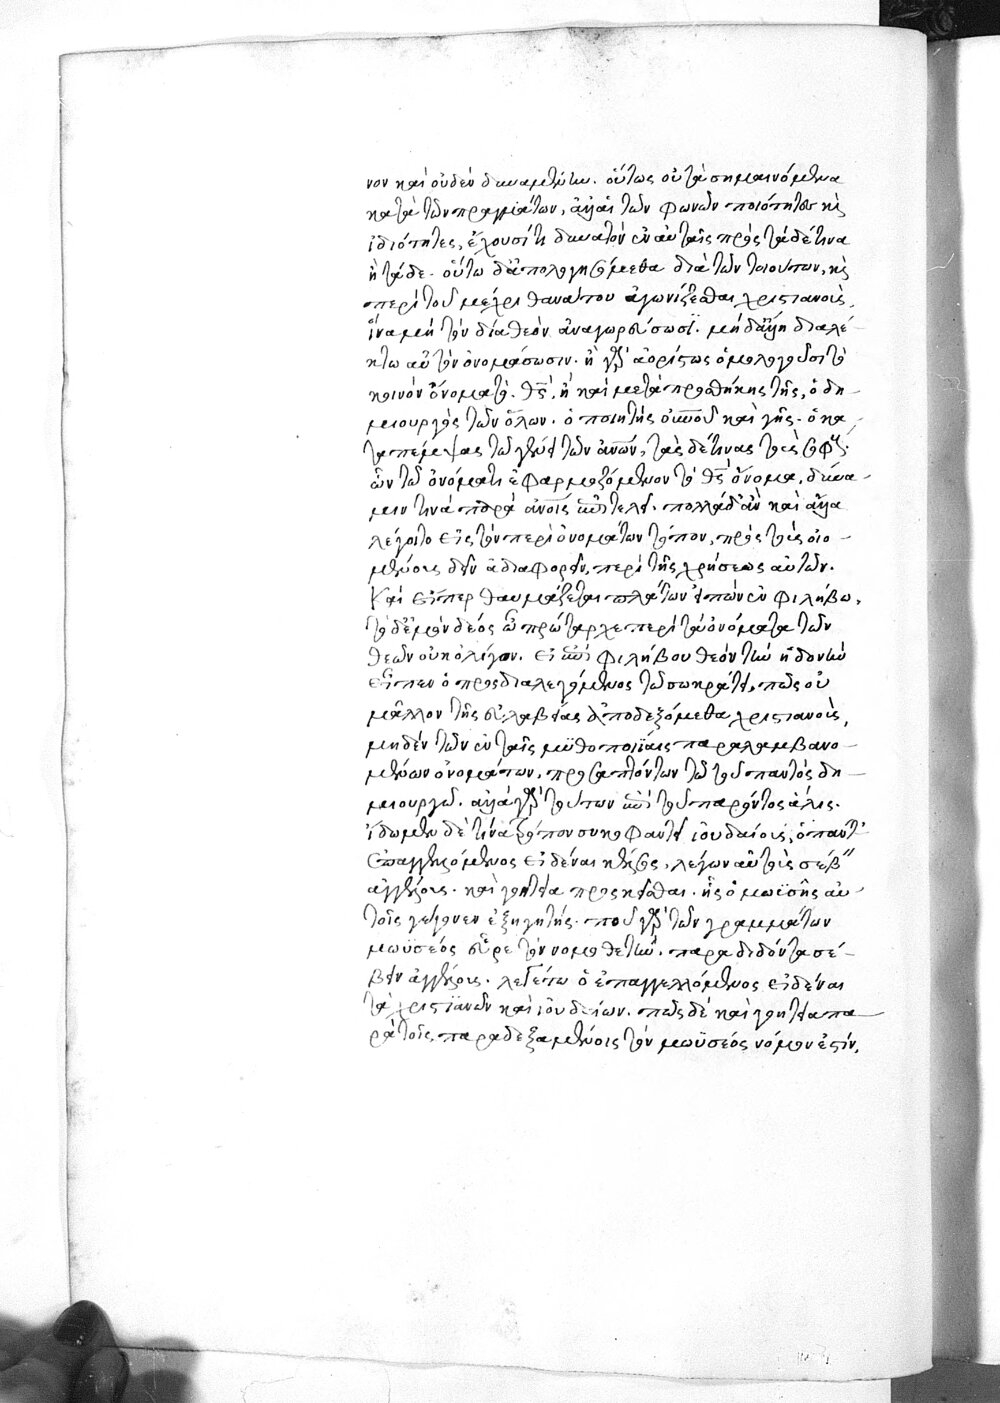 νον καὶ οὐδὲν δυναμένην. οὕτως οὐ τὰ σημαινόμενα
κατὰ τῶν πραγμάτων, ἀλλ' αἱ τῶν φωνῶν ποιότητες καὶ
ἰδιότητες, ἔχουσί τι δυνατὸν ἐν αὐταῖς πρὸς τάδέ τινα
ἢ τάδε. οὕτω δ' ἀπολογησόμεθα διὰ τῶν τοιούτων, καὶ
περὶ τοῦ μέχρι θανάτου ἀγωνίζεσθαι χριστιανοὺς,
ἵνα μὴ τὸν δία θεὸν ἀναγορεύσωσϊ. μὴ δ' ἄλλῃ διαλέ-
κτω αὐτὸν ὀνομάσωσιν. ἢ γὰρ ἀορίστως ὁμολογοῦσι τὸ
κοινὸν ὄνομα τὸ θς, ἢ καὶ μετὰ προσθήκης τῆς, ὁ δη-
μιουργὸς τῶν ὅλων. ὁ ποιητὴς οὐνοῦ καὶ γῆς. ὁ κα-
ταπέμψας τῷ γένει τῶν ἀνων, τάς δέ τινας τοὺς σοφούς.
ὧν τῷ ὀνόματι ἐφαρμοζόμενον τὸ θς ὄνομα, δύνα-
μιν τινὰ παρὰ ἀνοις ἐπιτελεῖ. πολλὰ δ' ἂν καὶ ἄλλα
λέγοιτο εἰς τὸν περὶ ὀνομάτων τόπον, πρὸς τοὺς οἰο-
μένους δεῖν ἀδιαφορεῖν περὶ τῆς χρήσεως αὐτῶν.
Καὶ εἴπερ θαυμάζεται πλάτων εἰπὼν ἐν φιλήβω,
τὸ δ' ἐμὸν δέος ὦ πρώταρχε περὶ τὰ ὀνόματα τῶν
θεῶν οὐκ ὀλίγον. ἐπεὶ φιλήβου θεὸν τὴν ἡδονὴν
εἶπεν ὁ προσδιαλεγόμενος τῷ σωκράτει, πῶς οὐ
μᾶλλον τῆς εὐλαβείας ἀποδεξόμεθα χριστιανοὺς,
μηδὲν τῶν ἐν ταῖς μυθοποιΐαις παραλαμβανο-
μένων ὀνομάτων, προσάπτόντων τῷ τοῦ παντὸς δη-
μιουργῷ. ἀλλὰ γὰρ τούτων ἐπὶ τοῦ παρόντος ἅλις.
ἴδωμεν δὲ τίνα τρόπον συκοφαντεῖ ἰουδαίους, ὁ πάντ'
ἐπαγγελλόμενος εἰδέναι κέλσος, λέγων αὐτοὺς σέβειν
ἀγγέλους. καὶ γοητεία προσκεῖσθαι. ἧς ὁ μωϋσῆς αὐ-
τοῖς γέγονεν ἐξηγητής. ποῦ γὰρ τῶν γραμμάτων
μωϋσέος εὗρε τὸν νομοθέτην παραδιδόντα σέ-
βειν ἀγγέλους. λεγέτω ὁ ἐπαγγελλόμενος εἰδέναι
τὰ χριστϊανῶν καὶ ἰουδαίων. πῶς δὲ καὶ γοητεία πα-
ρὰ τοῖς παραδεξαμένοις τὸν μωϋσέος νόμον ἐστίν,